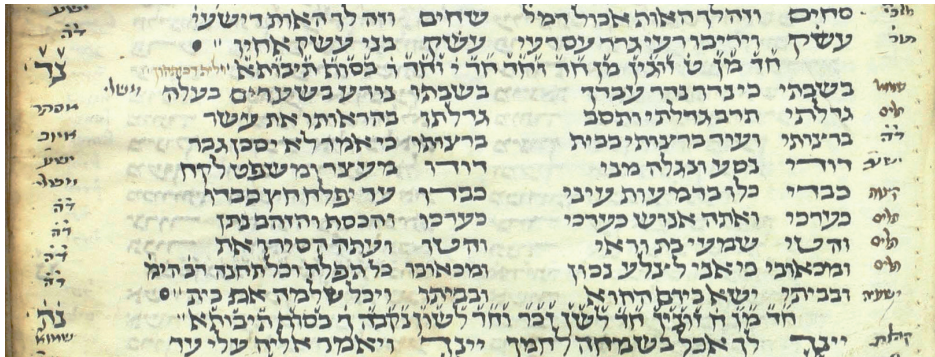 סחיש וזה לך האות אכול דמל שחיס וזה לך האות דישעי
עשק ויריבו רעי גרר עם רעי עשק בני עשק אחיו
חד מן ט זוגין מן חד וחד חד י וחד ו בסות תיבותא
בשבתי כי נדר נדר עבדך בשבתו נודע בשערים בעלה
גדלתי תרב גדלתי ותסב גדלתו בהראותו את עשר
ברצותי ועוד ברצותי בבית ברצותו כי אמר לא יסכן גבר
ישעי דורי נסע ונגלה מני דורו מעצר וממשפט לקח ישע
כבדי כלו בדמעות עיני כבדו עד יפלח חץ כבדו
תלים כערכי ואתה אנוש כערכי כערכו והכסף והזהב נתן דה
והטי שמעי בת וראי והטו ועתה הסירו את דה
תלים ומכאובי כי אני לצלע נכון ומכאובו כל תפלה וכל תחנה דה
ישעיה ובביתי ישא ביום ההוא ובביתו ויכל שלמה את בית דה
חד מן זוגין חד לשון זכר וחד לשון נקבה בסות תיבותא
קהלת יינך לך אכל בשמחה לחמך יינך ויאמר אליה עלי עד שמוא